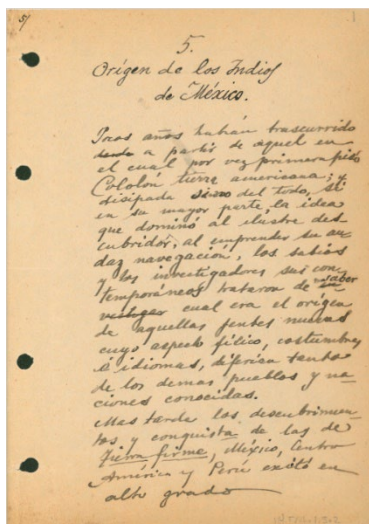 5
5.
Orígen de los Indios
de México.
Pocos años habían trascurrido
desde a partir de aquel en
el cual por vez primera pisó
Cololón tierra americana; y
disipada sino del todo, sí
en su mayor parte la idea
que dominó al ilustre des
cubridor, al emprender su au
daz navegación, los sabios
y los investigadores sus con
temporáneos trataron de
cual era el orígen
de aquellas gentes nuevas
cuyo aspecto físico, costumbres
é idiomas, diferían tanto
de los demas pueblos y na
ciones conocidas.
Mas tarde los descubrimien
tos y conquista de las de
Tierra firme, México, Centro
América y Perú exitó en
alto grado